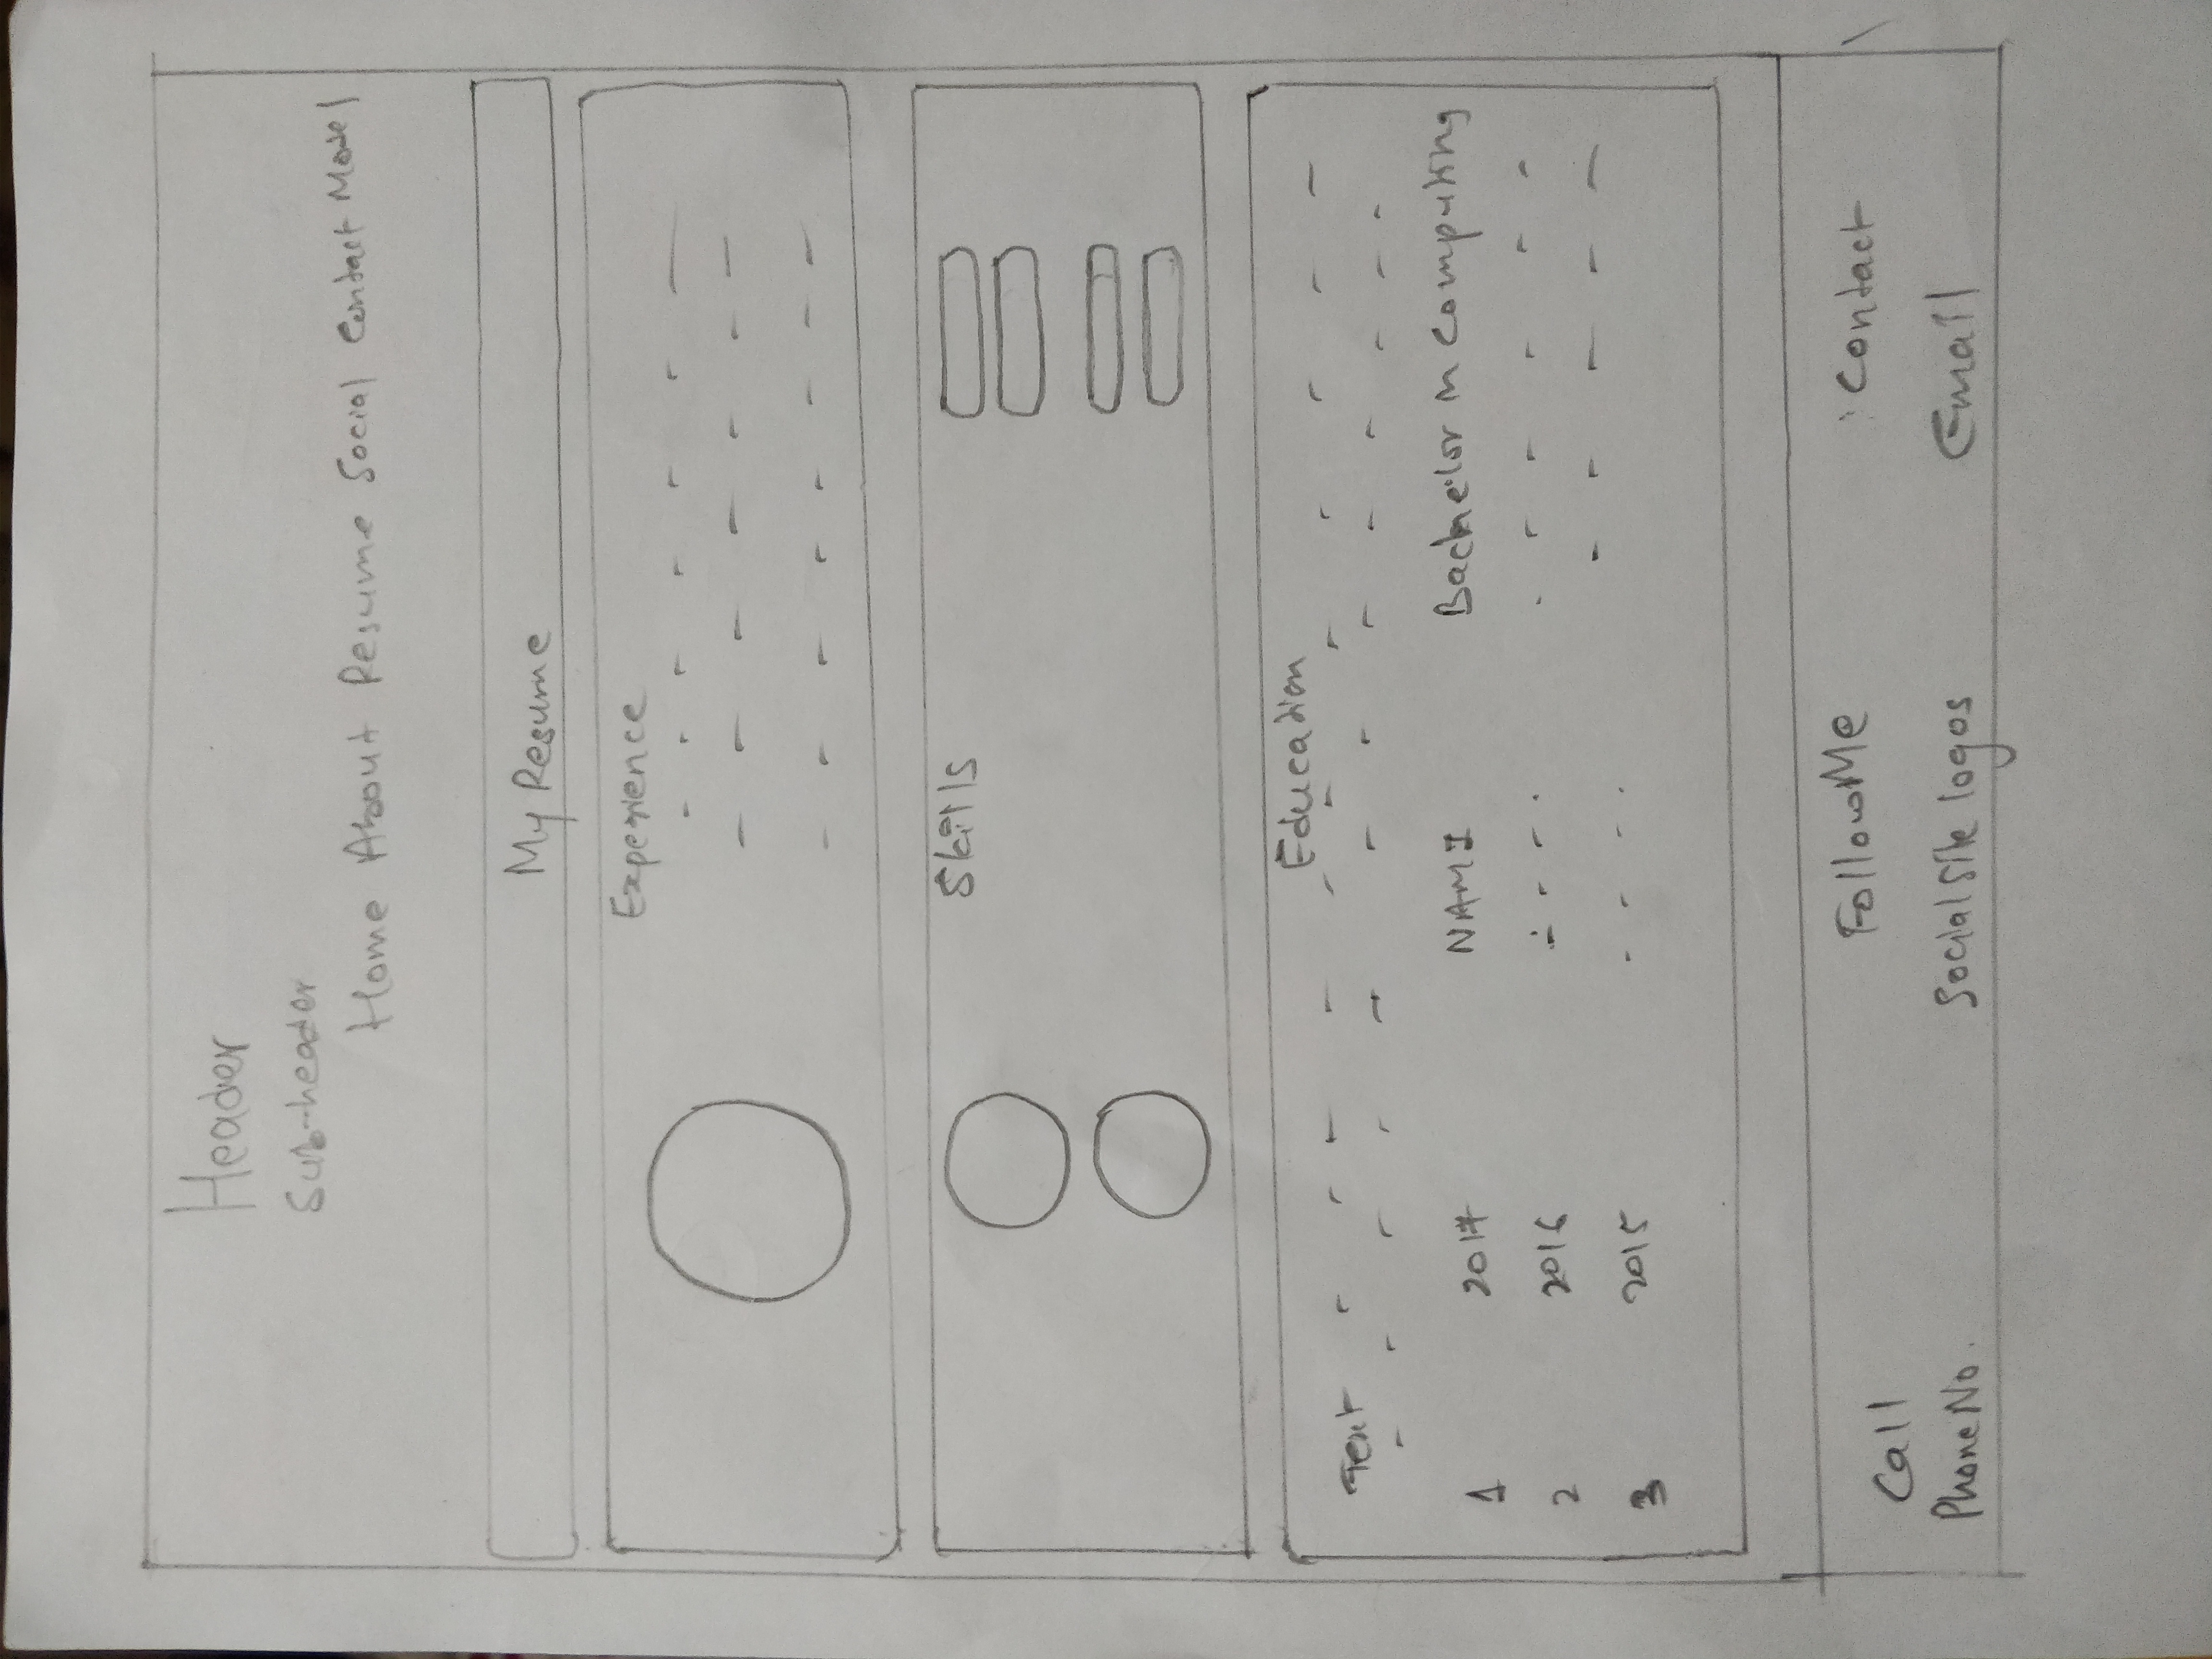 Header
Sub-header
Home About Resume Social Contact Model
My Resume
Experience
Skills
Education
Text
1 2017 NAMI Bachelor in Computing
2 2016
3 2015
Call FollowMe Contact
PhoneNo. Social Site logos Email